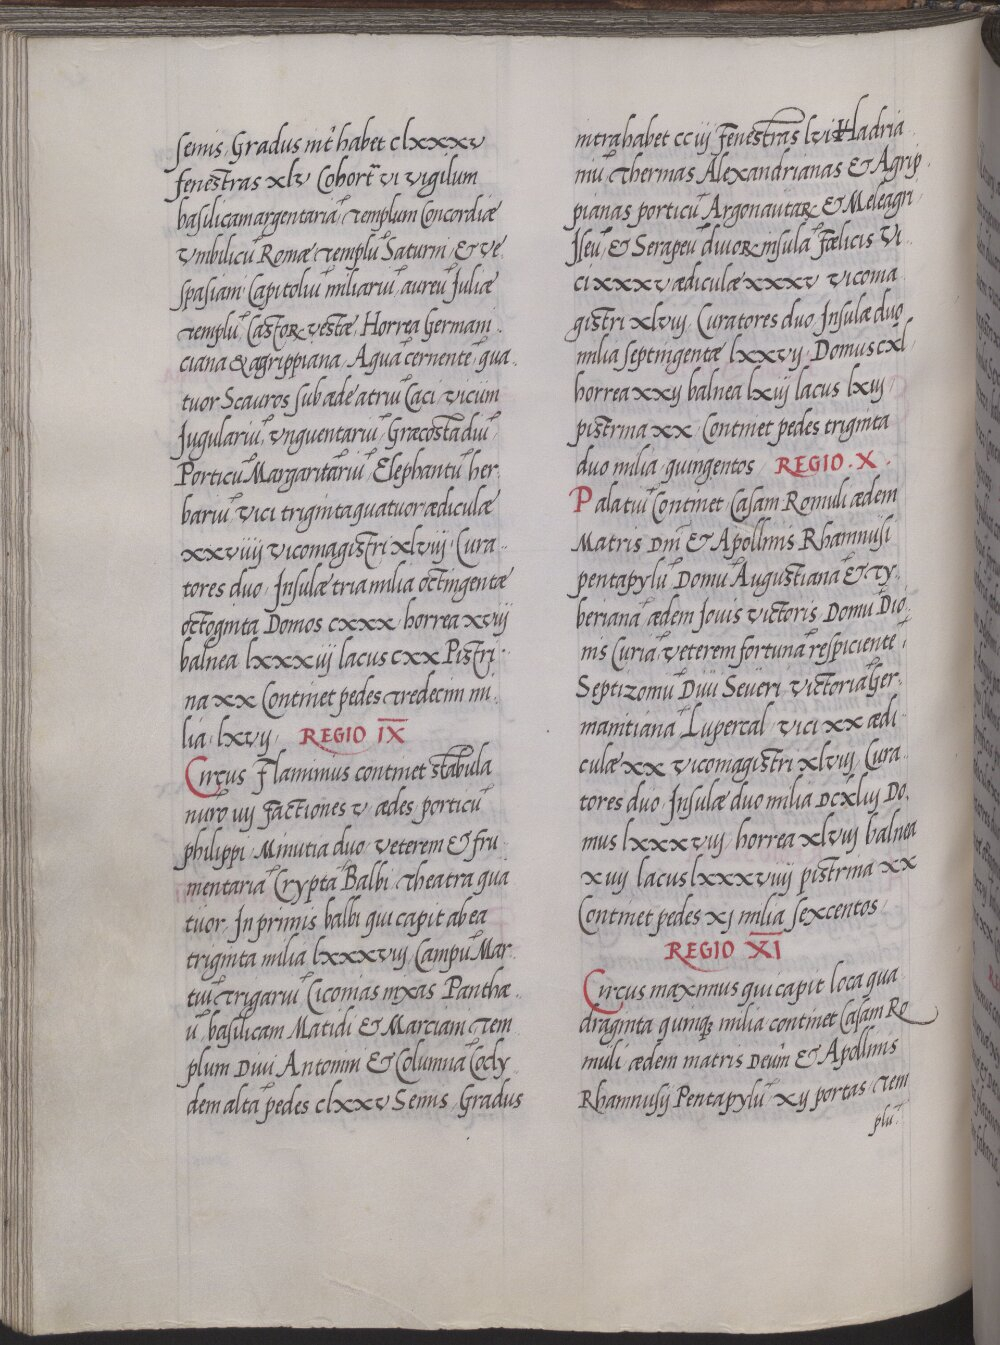 semis, Gradus int̃ habet clxxxv
fenestras xlv Cohort̃ vi vigilum
basilicam argentariā Templum Concordiæ
Vmbilicū Romæ Templū Saturni & Ve
spasiani Capitoliū miliariū aureū Juliæ
Templū Castoꝝ Vestæ, Horrea Germani
ciana & agrippiana Aquā cernente qua
tuor Scauros sub æde atriū Caci vicum
Jugulariū, Vnguentariū, Græcostadiū
Porticū Margaritariū Elephantū her
bariū, vici triginta quatuor ædiculæ
xxviiij vicomagistri xlviij, Cura
tores duo, Insulæ tria milia octingentæ
octoginta Domos cxxx, horrea xviij
balnea lxxxiij lacus cxx Pistri
na xx Continet pedes tredecim mi
lia, lxvij REGIO IX
Circus Flaminius continet stabula
nūro iiij Factiones v ædes, porticū
philippi Minutia duo, veterem & fru
mentariā Cryptā Balbi Theatra qua
tuor Inprimis balbi qui capit ab ea
triginta milia lxxxviij Campū Mar
tiū Trigariū Ciconias nixas Panthæ
ū basilicam Matidi & Marciani Tem
plum Divi Antonini & Columnā Cocly
dem altā pedes clxxv Semis, Gradus
intra habet cciij Fenestras lvi Hadria
niū Thermas Alexandrianas & Agrip
pianas porticū Argonautaꝝ & Meleagri
Iseū & Serapeū divioꝝ insulā Fælicis Vi
ci xxxv ædiculæ xxxv vicoma
gistri xlviij Curatores duo Insulæ duo
milia septingentæ lxxvij, Domus cxl
horrea xxij balnea lxiij lacus lxiij
pistrina xx, Continet pedes triginta
duo milia, quingentos REGIO . X .
Palatiū Continet Casam Romuli ædem
Matris Dm̃ & Apollinis Rhamnusi
pentapylū Domū Augustianā & Ty
berianā ædem Jovis victoris Domū Dio
nis Curiā, veterem fortunā respiciente
Septizomū Divi Severi Victoriā Ger
manitianā Lupercal, vici xx ædi
culæ xx vicomagistri xlviij Cura
tores duo Insulæ duo milia DCxliij Do
mus lxxxviij, horrea xlviij balnea
xiiij lacus lxxxviiij pistrina xx
Continet pedes xj milia sexcentos
REGIO XI
Circus maximus qui capit loca qua
draginta quinqꝫ milia continet Casam Ro
muli ædem matris Deum̃ & Apollinis
Rhamnusij Pentapylū xij portas Tem
plū